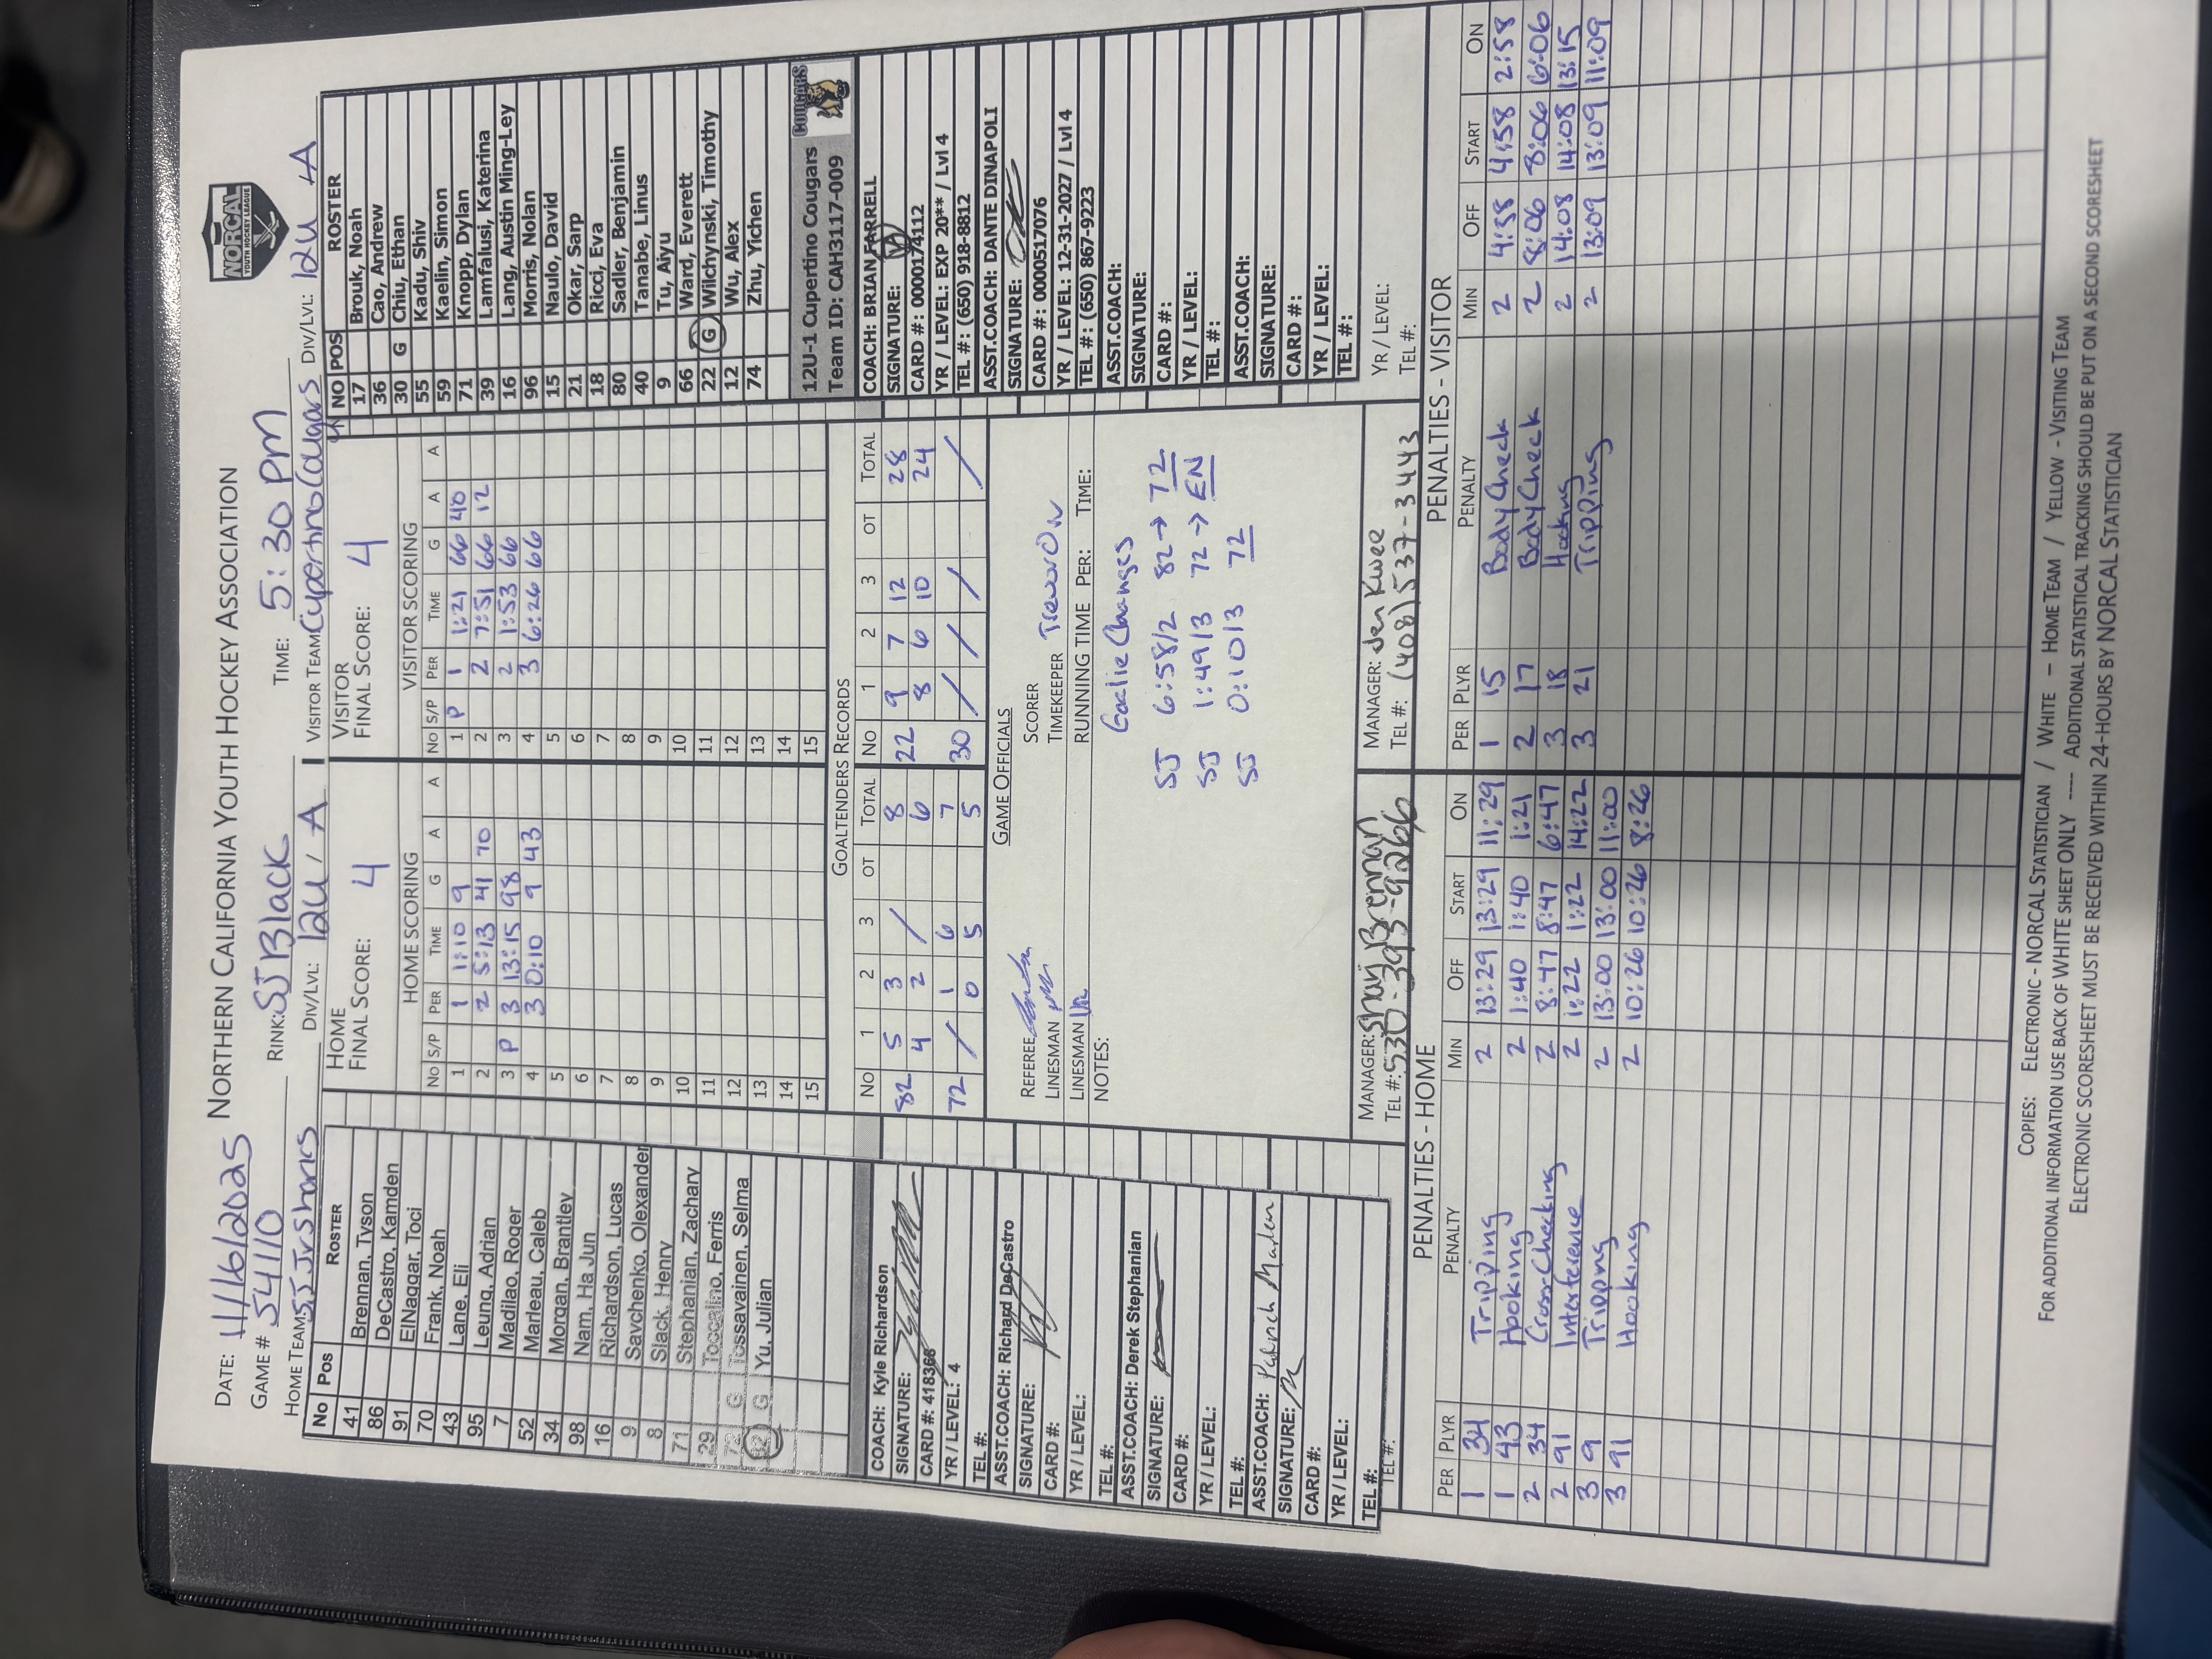 NORTHERN CALIFORNIA YOUTH HOCKEY ASSOCIATION
NORCAL
YOUTH HOCKEY LEAGUE
DATE: 11/16/2025
GAME # 54110 RINK: SJ Black TIME: 5:30 PM
HOME TEAM: SJ Jr Sharks DIV/LVL: 12U / A VISITOR TEAM: Cupertino Cougars DIV/LVL: 12U A
No Pos ROSTER
41 Brennan, Tyson
86 DeCastro, Kamden
91 ElNaggar, Toci
70 Frank, Noah
43 Lane, Eli
95 Leung, Adrian
7 Madilao, Roger
52 Marleau, Caleb
34 Morgan, Brantley
98 Nam, Ha Jun
16 Richardson, Lucas
9 Savchenko, Olexander
8 Slack, Henry
71 Stephanian, Zachary
29 Toccalino, Ferris
72 G Tossavainen, Selma
82 G Yu, Julian
COACH: Kyle Richardson
SIGNATURE:
CARD #: 418366
YR / LEVEL: 4
TEL #:
ASST.COACH: Richard DeCastro
SIGNATURE:
CARD #:
YR / LEVEL:
TEL #:
ASST.COACH: Derek Stephanian
SIGNATURE:
CARD #:
YR / LEVEL:
TEL #:
ASST.COACH: Patrick Marleau
SIGNATURE:
CARD #:
YR / LEVEL:
TEL #:
TEL #:
HOME
FINAL SCORE: 4
HOME SCORING
NO S/P PER TIME G A A
1 1 1:10 9
2 2 5:13 41 70
3 P 3 13:15 98
4 3 0:10 9 43
5
6
7
8
9
10
11
12
13
14
15
VISITOR
FINAL SCORE: 4
VISITOR SCORING
NO S/P PER TIME G A A
1 P 1 1:21 66 40
2 2 7:51 66 12
3 2 1:53 66
4 3 6:26 66
5
6
7
8
9
10
11
12
13
14
15
GOALTENDERS RECORDS
NO 1 2 3 OT TOTAL NO 1 2 3 OT TOTAL
82 5 3 / 8 22 9 7 12 28
4 2 6 8 6 10 24
72 / 1 6 7 30 / / / /
0 5 5
GAME OFFICIALS
REFEREE SCORER
LINESMAN TIMEKEEPER Trevor On
LINESMAN RUNNING TIME PER: TIME:
NOTES:
Goalie Changes
SJ 6:58/2 82→72
SJ 1:49/3 72→EN
SJ 0:10/3 72
MANAGER: Shay Brennan
TEL #: 530-393-9266
MANAGER: Jen Kwee
TEL #: (408)537-3443
NO POS ROSTER
17 Brouk, Noah
36 Cao, Andrew
30 G Chiu, Ethan
55 Kadu, Shiv
59 Kaelin, Simon
71 Knopp, Dylan
39 Lamfalusi, Katerina
16 Lang, Austin Ming-Ley
96 Morris, Nolan
15 Naulo, David
21 Okar, Sarp
18 Ricci, Eva
80 Sadler, Benjamin
40 Tanabe, Linus
9 Tu, Aiyu
66 Ward, Everett
22 G Wilchynski, Timothy
12 Wu, Alex
74 Zhu, Yichen
12U-1 Cupertino Cougars
Team ID: CAH3117-009
COUGARS
COACH: BRIAN FARRELL
SIGNATURE:
CARD #: 0000174112
YR / LEVEL: EXP 20** / Lvl 4
TEL #: (650) 918-8812
ASST.COACH: DANTE DINAPOLI
SIGNATURE:
CARD #: 0000517076
YR / LEVEL: 12-31-2027 / Lvl 4
TEL #: (650) 867-9223
ASST.COACH:
SIGNATURE:
CARD #:
YR / LEVEL:
TEL #:
ASST.COACH:
SIGNATURE:
CARD #:
YR / LEVEL:
TEL #:
YR / LEVEL:
TEL #:
PENALTIES - HOME
PER PLYR PENALTY MIN OFF START ON
1 34 Tripping 2 13:29 13:29 11:29
1 43 Hooking 2 1:40 1:40 1:21
2 34 Cross-Checking 2 8:47 8:47 6:47
2 91 Interference 2 1:22 1:22 14:22
3 9 Tripping 2 13:00 13:00 11:00
3 91 Hooking 2 10:26 10:26 8:26
PENALTIES - VISITOR
PER PLYR PENALTY MIN OFF START ON
1 15 Body Check 2 4:58 4:58 2:58
2 17 Body Check 2 8:06 8:06 6:06
3 18 Hooking 2 14:08 14:08 13:15
3 21 Tripping 2 13:09 13:09 11:09
COPIES: ELECTRONIC - NORCAL STATISTICIAN / WHITE - HOME TEAM / YELLOW - VISITING TEAM
FOR ADDITIONAL INFORMATION USE BACK OF WHITE SHEET ONLY ---- ADDITIONAL STATISTICAL TRACKING SHOULD BE PUT ON A SECOND SCORESHEET
ELECTRONIC SCORESHEET MUST BE RECEIVED WITHIN 24-HOURS BY NORCAL STATISTICIAN